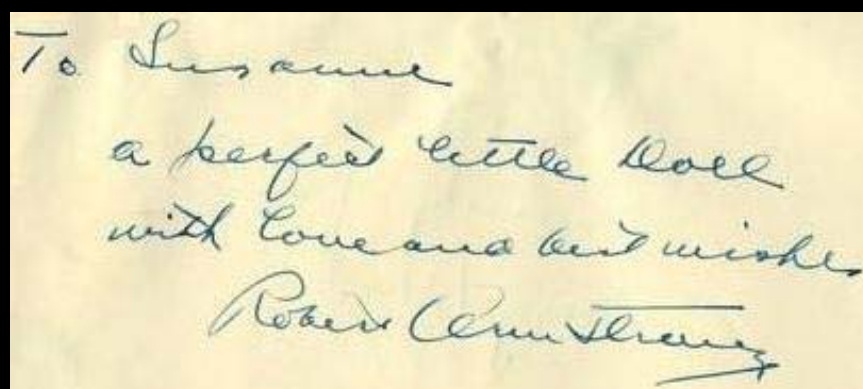 To Susanne
a perfect little Doll
with love and best wishes
Robert Armstrong